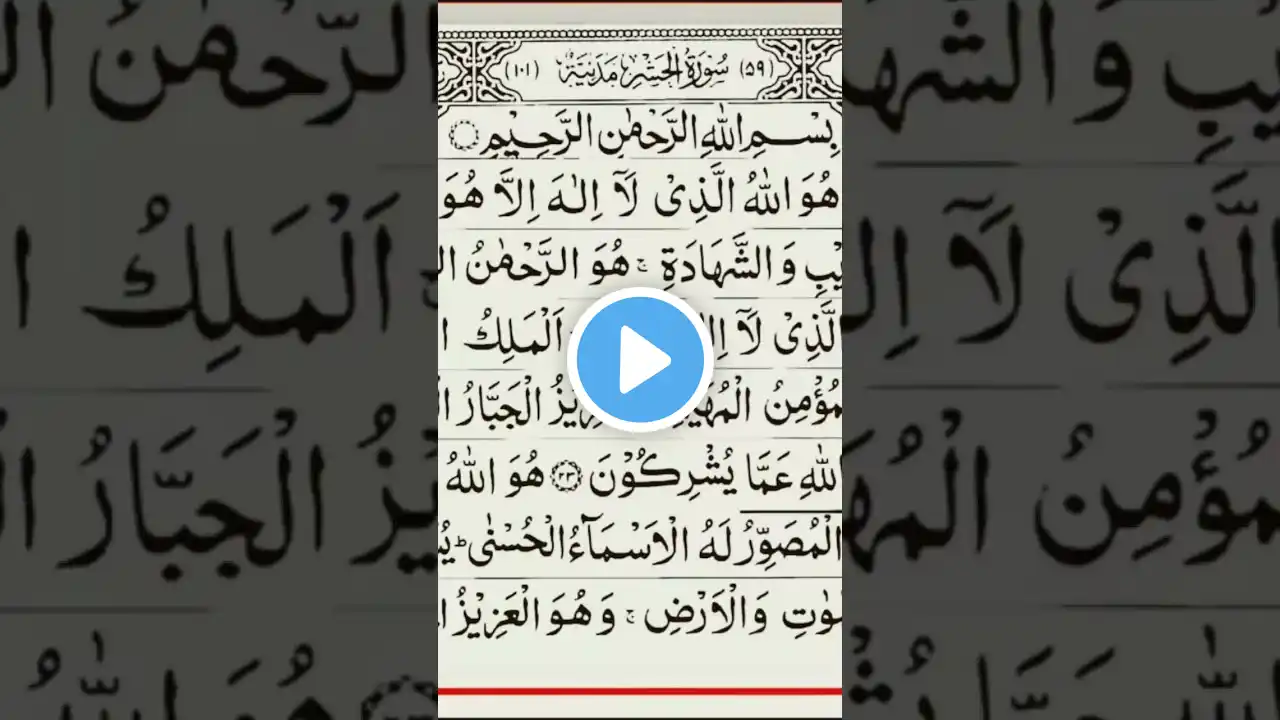 (۵۹) سُوْرَةُ الْحَشْرِ مَدَنِيَّةٌ (۱۰۱)
بِسْمِ اللّٰهِ الرَّحْمٰنِ الرَّحِيْمِ
هُوَ اللّٰهُ الَّذِىْ لَآ اِلٰهَ اِلَّا هُوَ
يْبِ وَالشَّهَادَةِ ۚ هُوَ الرَّحْمٰنُ
الَّذِىْ لَآ اَلْمَلِكُ
مُؤْمِنُ الْجَبَّارُ
اللّٰهِ عَمَّا يُشْرِكُوْنَ ﴿۲۳﴾ هُوَ اللّٰهُ
الْمُصَوِّرُ لَهُ الْاَسْمَآءُ الْحُسْنٰى ؕ
مٰوٰتِ وَالْاَرْضِ ۚ وَهُوَ الْعَزِيْزُ